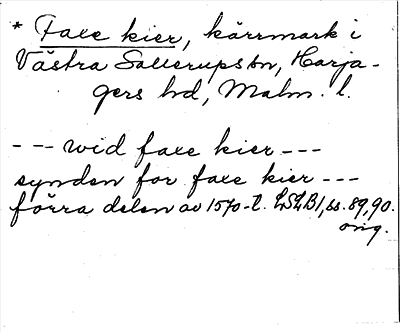 * Faxe kier, kärrmark i
Västra Sallerups sn, Harja-
gers hd, Malm. l.
--- wid faxe kier ---
synden for faxe kier ---
förra delen av 1570-t. LSLB1, ss. 89, 90.
orig.